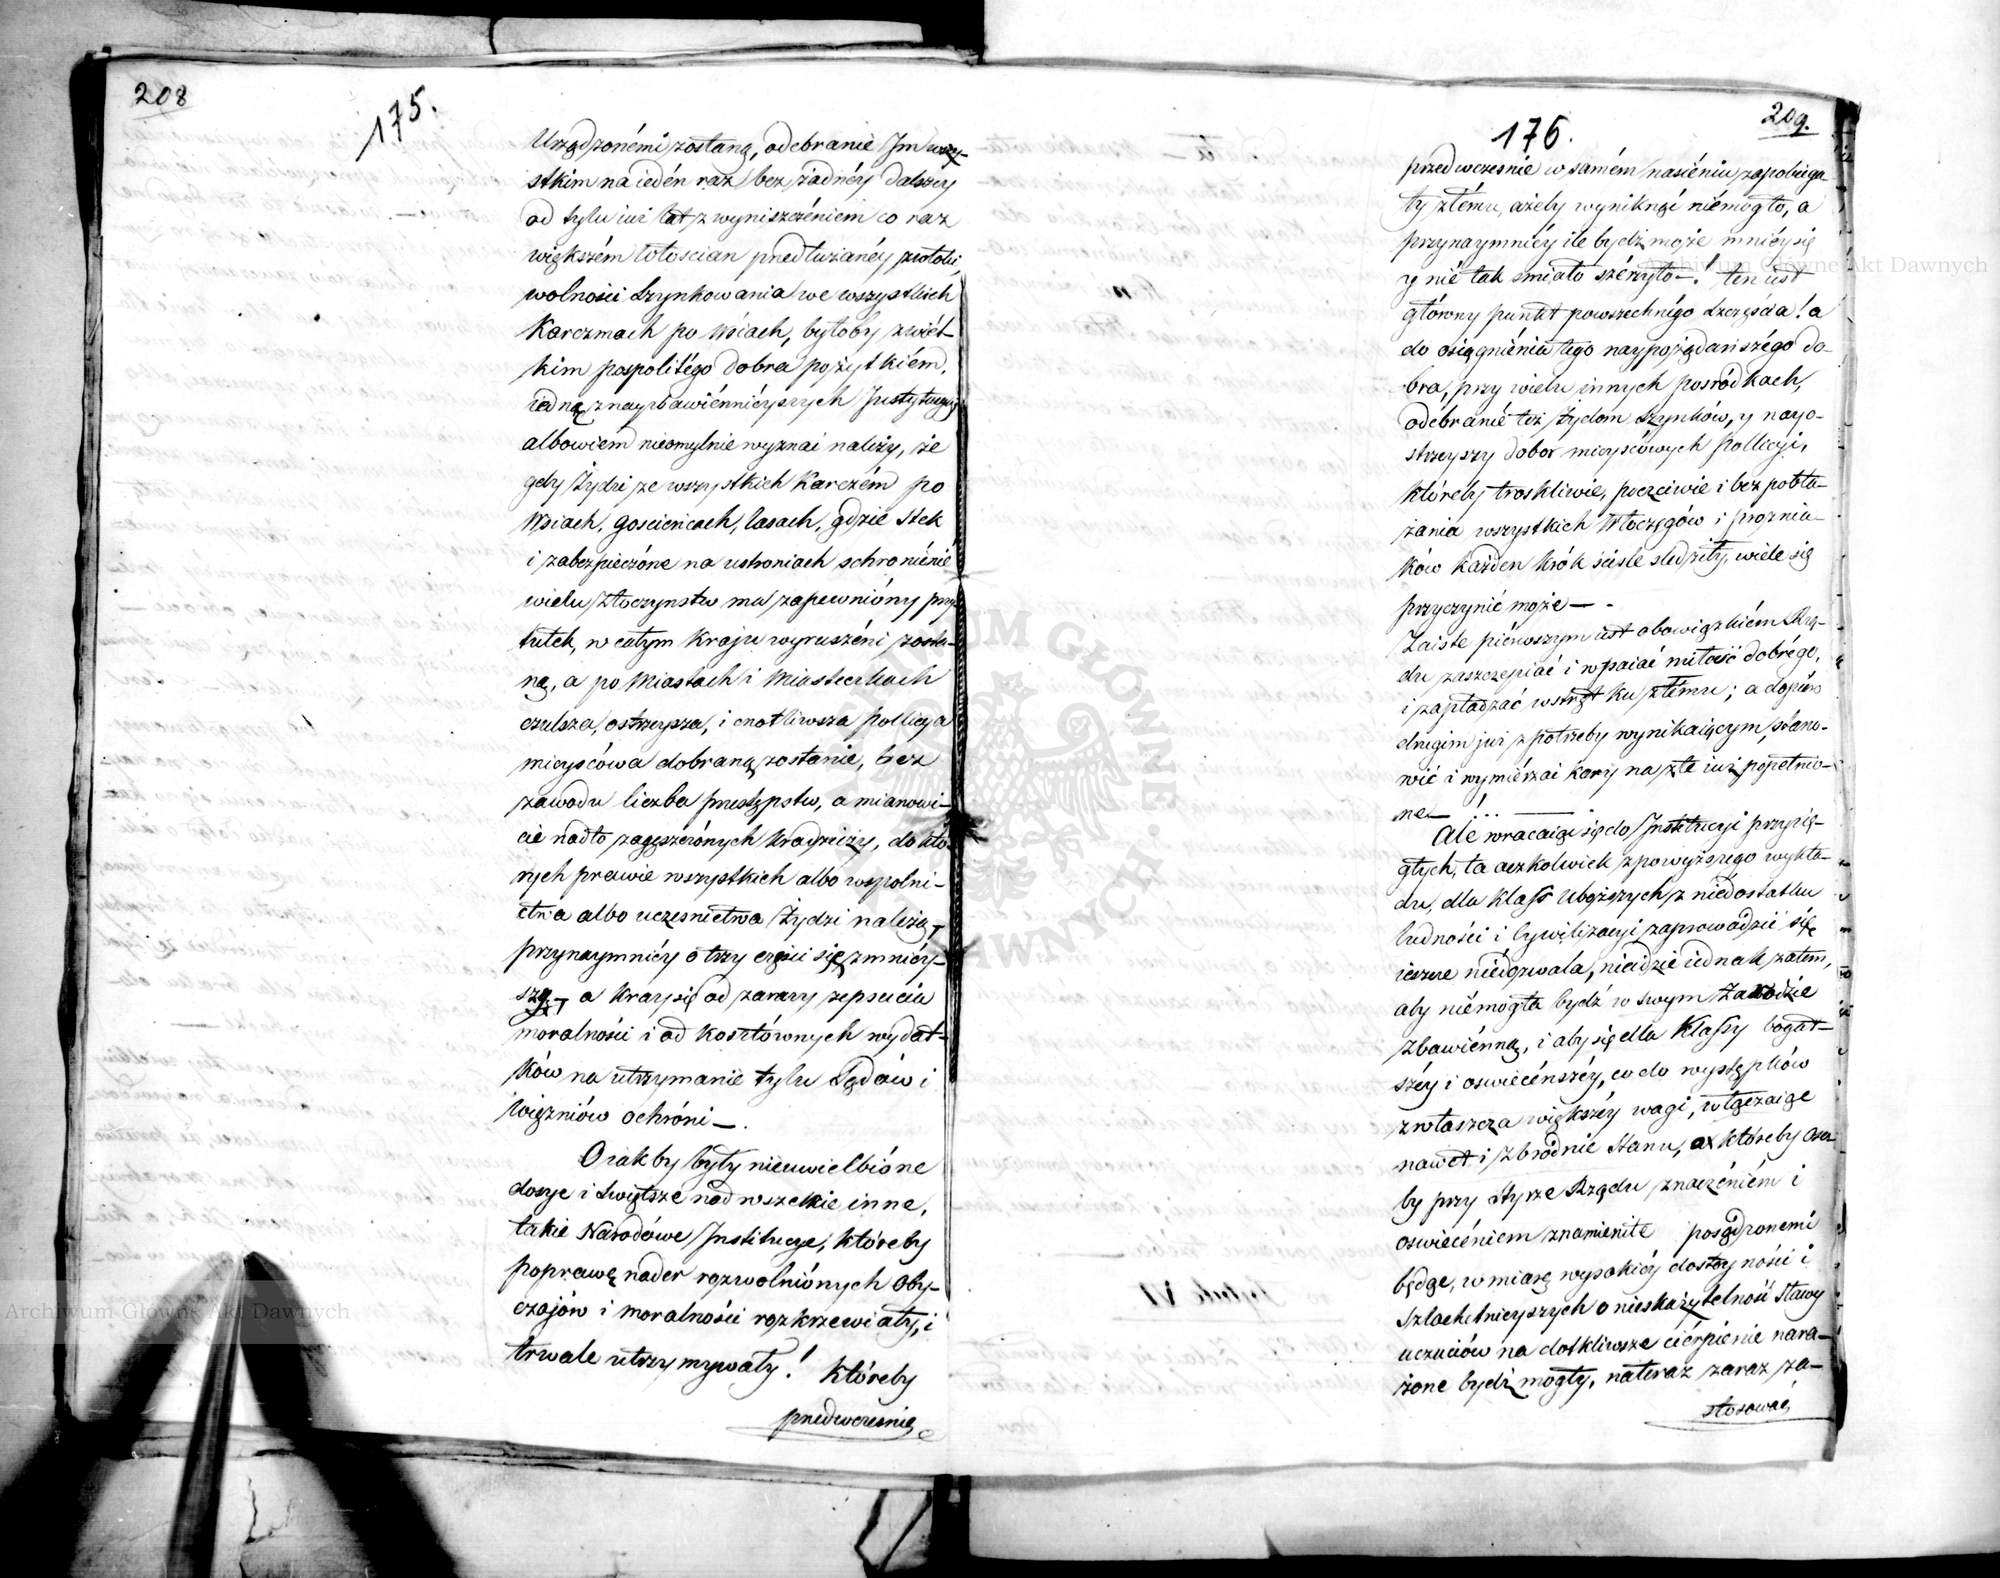 208
175.
Urządzonémi zostaną, odebranie Im wszy-
stkim na iedén raz bez żadnéy dalszey
od tylu iuż lat z wyniszczéniem co raz
większém Włoscian przedłużanéy
wolności Szynkowania we wszystkich
Karczmach po Wsiach, byłoby z wiél-
kim pospolitégo dobra pożytkiém,
iedną z nayzbawiénnieyszych Instytucyi
albowiem nieomylnie wyznać należy, że
gdy Żydzi ze wszystkich Karczém po
Wsiach, gosciencach, lasach, gdzie stek
i zabezpieczóne na ustroniach schroniénie
wielu złoczynstw ma zapewnióny przy-
tułek, w całym Kraju wyruszéni zosta-
ną, a po Miastach i Miasteczkach
czulsza, ostrzeysza, i cnotliwsza pollicya
mieyscówa dobraną zostanie, bez
zawodu liczba przestępstw, a mianowi-
cie nadto zagęszczónych kradzieży, do któ-
rych prawie wszystkich albo wspolni-
ctwa albo uczesnictwa Żydzi należą,
przynaymniéy o trzy części się zmniéy-
szą, a kray się od zarazy zepsucia
moralności i od kosztównych wydat-
ków na utrzymanie tylu Sądów i
Więzniów ochróni —.
O iakby były nieuwielbióne
dosyc i swiętsze nad wszelkie inne,
takie Narodówe Institucye, któreby
poprawę nader rozwolniónych oby-
czajów i moralności rozkrzewiały, i
trwale utrzymywały! któreby
przedwczesnie
209.
176.
przedwczesnie w samém nasiéniu zapobiega-
ły złému, ażeby wyniknąć niémogło, a
przynaymniéy ile bydź może mniéy się
y nié tak smiało szérzyło —! ten iest
główny punkt powszechnégo Szczęścia! a
do osiągniénia tego naypożądańszégo do-
bra, przy wielu innych posródkach,
odebranié też Żydom Szynków, y nayo-
strzeyszy dobor mieyscówych Pollicyi,
któreby troskliwie, poczciwie i bez pobła-
żania wszystkich Włoczęgów i prożnia-
ków każden krók sciśle sledziły, wiele się
przyczynić może — -
Zaiste piérwszym iest obowiązkiém Rzą-
du zaszczepiać i wpaiać miłość dobrégo,
i zapładzać wstręt ku złému; a dopiéro
drugim już z potrzeby wynikaiącym, stano-
wić i wymiérzać kary na złe iuż popełnio-
ne — !...
Ale wracaiąc się do Institucyi przysię-
głych, ta aczkolwiek z powyższego wykła-
du, dla klass Uboższych z niédostatku
ludności i Cywilizacyi zaprowadzić się
ieszcze niédozwala, nieidzie iednak zatem,
aby niémogła bydź w swym Zawodzie
zbawiénną, i aby się dla Klassy bogat-
széy i oswiecénszéy, co do występków
zwłaszcza większéy wagi, włączaiąc
nawet i zbrodnie Stanu, o któreby oso-
by przy Styrze Rządu znaczéniém i
oswiecéniem znamienite posądzonemi
będąc, w miarę wysokiéy dostoyności i
Szlachetnieyszych o nieskazytelność Sławy
uczuciów na dotkliwsze ciérpienie nara-
żone bydź mogły, nateraz zaraz za-
stosować
Tytułu VI
Archiwum Główne Akt Dawnych
Archiwum Główne Akt Dawnych
ARCHIWUM GŁÓWNE AKT DAWNYCH